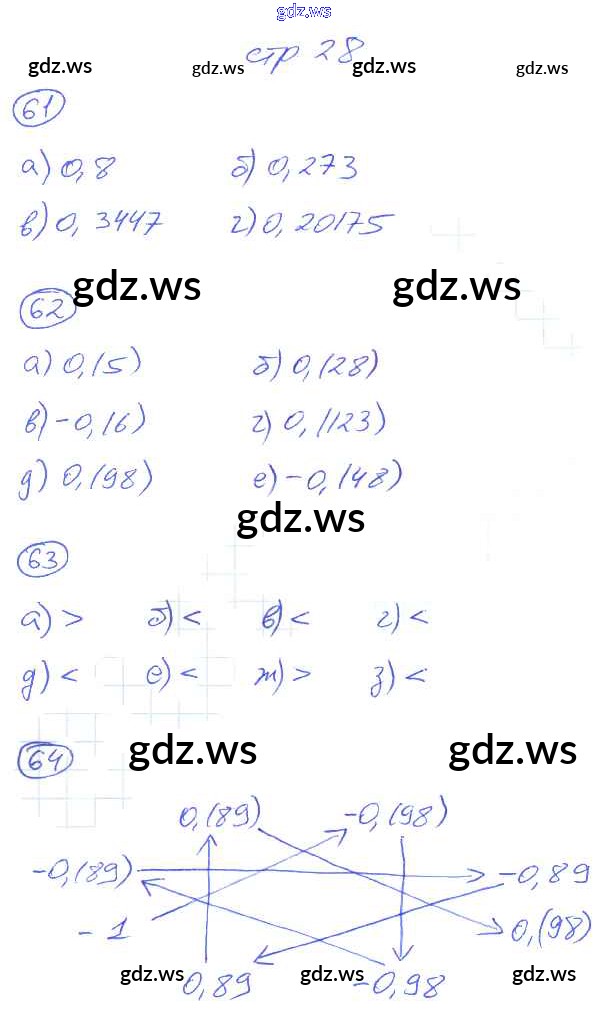 gdz.ws
стр 28
gdz.ws gdz.ws gdz.ws gdz.ws
61
а) 0,8 б) 0,273
в) 0,3447 г) 0,20175
gdz.ws gdz.ws
62
а) 0,(5) б) 0,(28)
в) -0,(6) г) 0,(123)
д) 0,(98) е) -0,(48)
gdz.ws
63
а) > б) < в) < г) <
д) < е) < ж) > з) <
64
gdz.ws gdz.ws
0,(89) -0,(98)
-0,(89) -0,89
-1 0,(98)
0,89 -0,98
gdz.ws gdz.ws gdz.ws